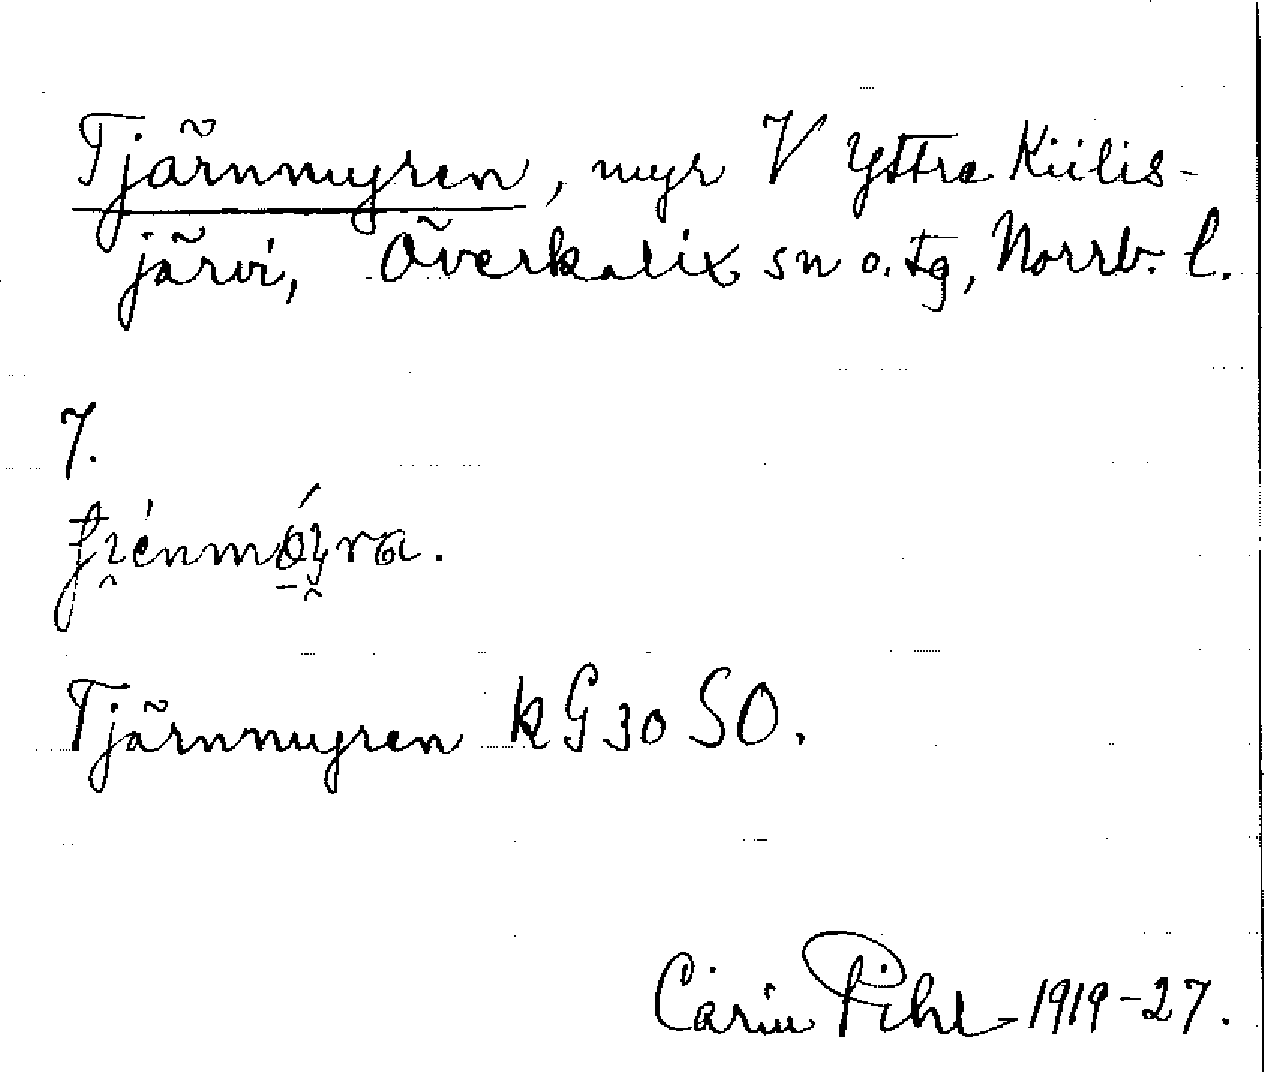 Tjärnmyren, myr V Yttre Kiilis-
järvi, Överkalix sn o. tg, Norrb. l.
7.
Tjärnmyren k G 30 SO.
Carin Pihl 1919-27.